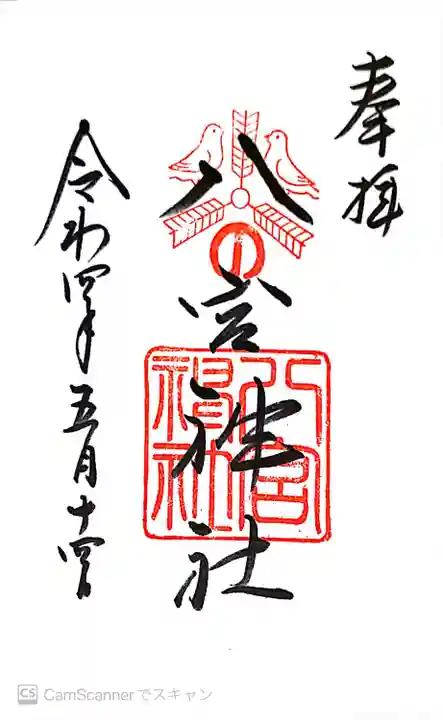 奉拝
八宮神社
八宮
神社
令和四年五月十四日
CS CamScannerでスキャン